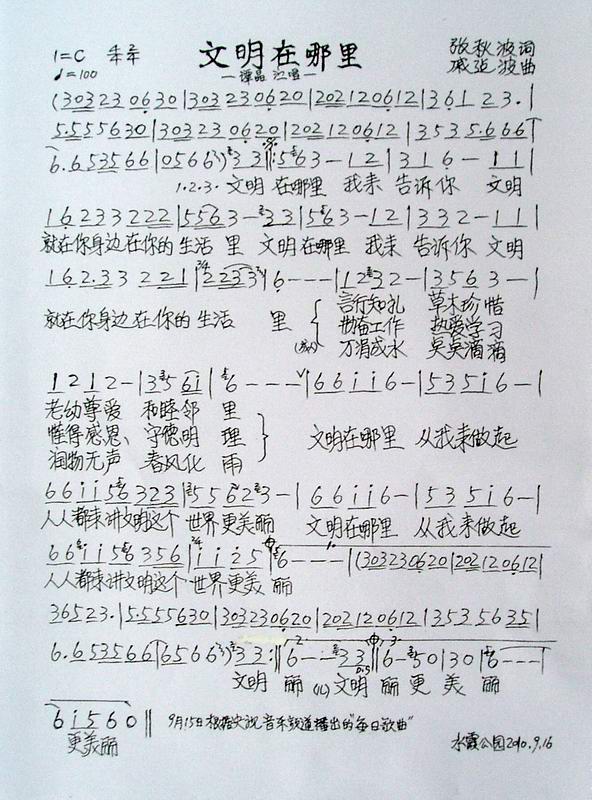 1=C 4/4 2/4 文明在哪里 张秋波词
♩=100 —谭晶 演唱— 戚建波曲
(3032306 30|30323 0620|202120612|361 23.|
5.5555630|303230620|202120612|35355.666|
6.6535566|0566)33|:563-12|316-11|
1.2.3.文明 在哪里 我来 告诉你 文明
16233222|5563-33|563-12|332-11|
就在你身边在你的生活 里 文明在哪里 我来 告诉你 文明
162.33221|2233|6---|1232-|3563-|
就在你身边在你的生活 里 { 言行知礼 草木珍惜
勤奋工作 热爱学习
万涓成水 点点滴滴
1212-|356i|6---|66ii6-|535i6-|
老幼尊爱 和睦邻 里
懂得感恩、守德明 理 } 文明在哪里 从我来做起
润物无声 春风化 雨
66ii56323|55623-|66ii6-|535i6-|
人人都来讲文明这个 世界更美丽 文明在哪里 从我来做起
66ii56356|iii5|6---|(303230620|202120612|
人人都来讲文明这个 世界更美 丽
36523.|5.5555630|303230620|202120612|35355635|
6.6535566|6566)33:|6--33|6-50|30|6---|
文明 丽 文明 丽 更 美 丽
6i560‖ 9月15日根据央视音乐频道播出的"每日歌曲"
更美丽 水霞公园2010.9.16